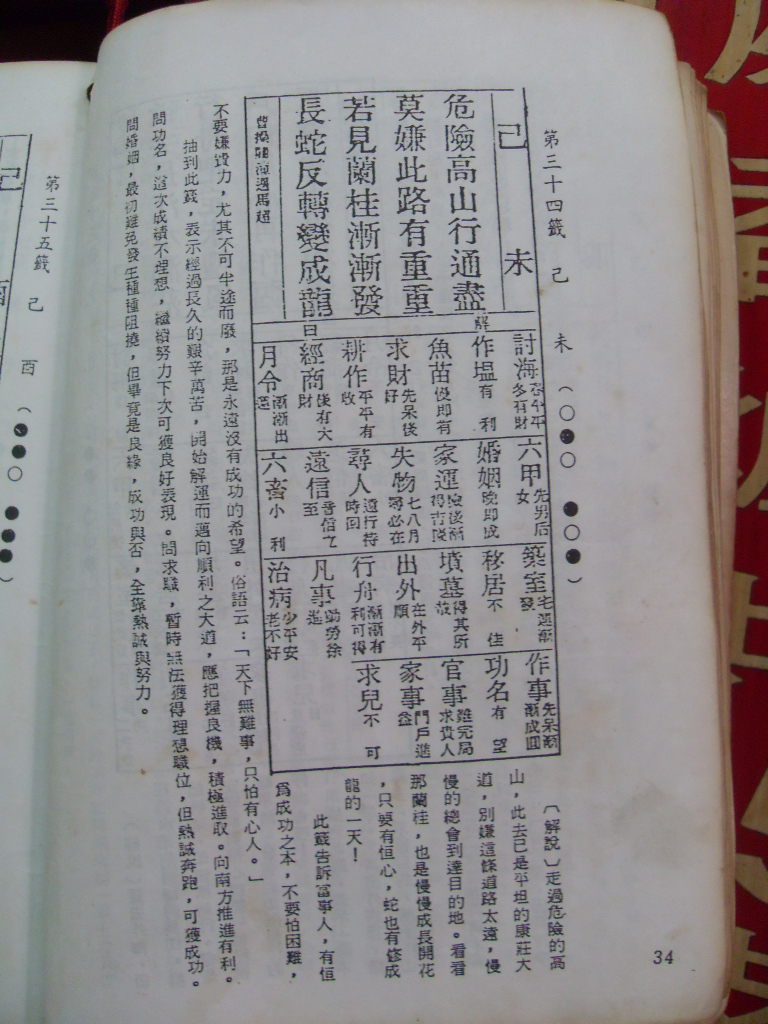 第三十四籤 己 未 (○●○ ●○●)
己 未
危險高山行通盡
莫嫌此路有重重
若見蘭桂漸漸發
長蛇反轉變成龍
解
曰
討海
冬有財
作塭有利
魚苗
求財先呆後好
耕作平平有收
經商後有大財
月令漸漸出
六甲先男后女
婚姻晚即成
家運
失物七八月尋必在
尋人遠行待時回
遠信音信
至
六畜小利
築室
發
移居不佳
墳墓得其所
出外在外平順
行舟漸漸有利可得
凡事勤勞
治病少平安老不好
作事先呆漸漸成圓
功名有望
官事難完局求貴人
家事門戶進益
求兒不可
〔解說〕走過危險的高
山,此去已是平坦的康莊大
道,別嫌這條道路太遠,慢
慢的總會到達目的地。看看
那蘭桂,也是慢慢成長開花
,只要有恒心,蛇也有修成
龍的一天!
此籤告訴當事人,有恒
為成功之本,不要怕困難,
不要嫌費力,尤其不可半途而廢,那是永遠沒有成功的希望。俗語云:「天下無難事,只怕有心人。」
抽到此籤,表示經過長久的艱辛萬苦,開始解運而邁向順利之大道,應把握良機,積極進取。向南方推進有利。
問功名,這次成績不理想,繼續努力下次可獲良好表現。問求職,暫時無法獲得理想職位,但熱誠奔跑,可獲成功。
問婚姻,最初難免發生種種阻撓,但畢竟是良緣,成功與否,全靠熱誠與努力。
34
第三十五籤 己 酉 (●●○ ●●●)